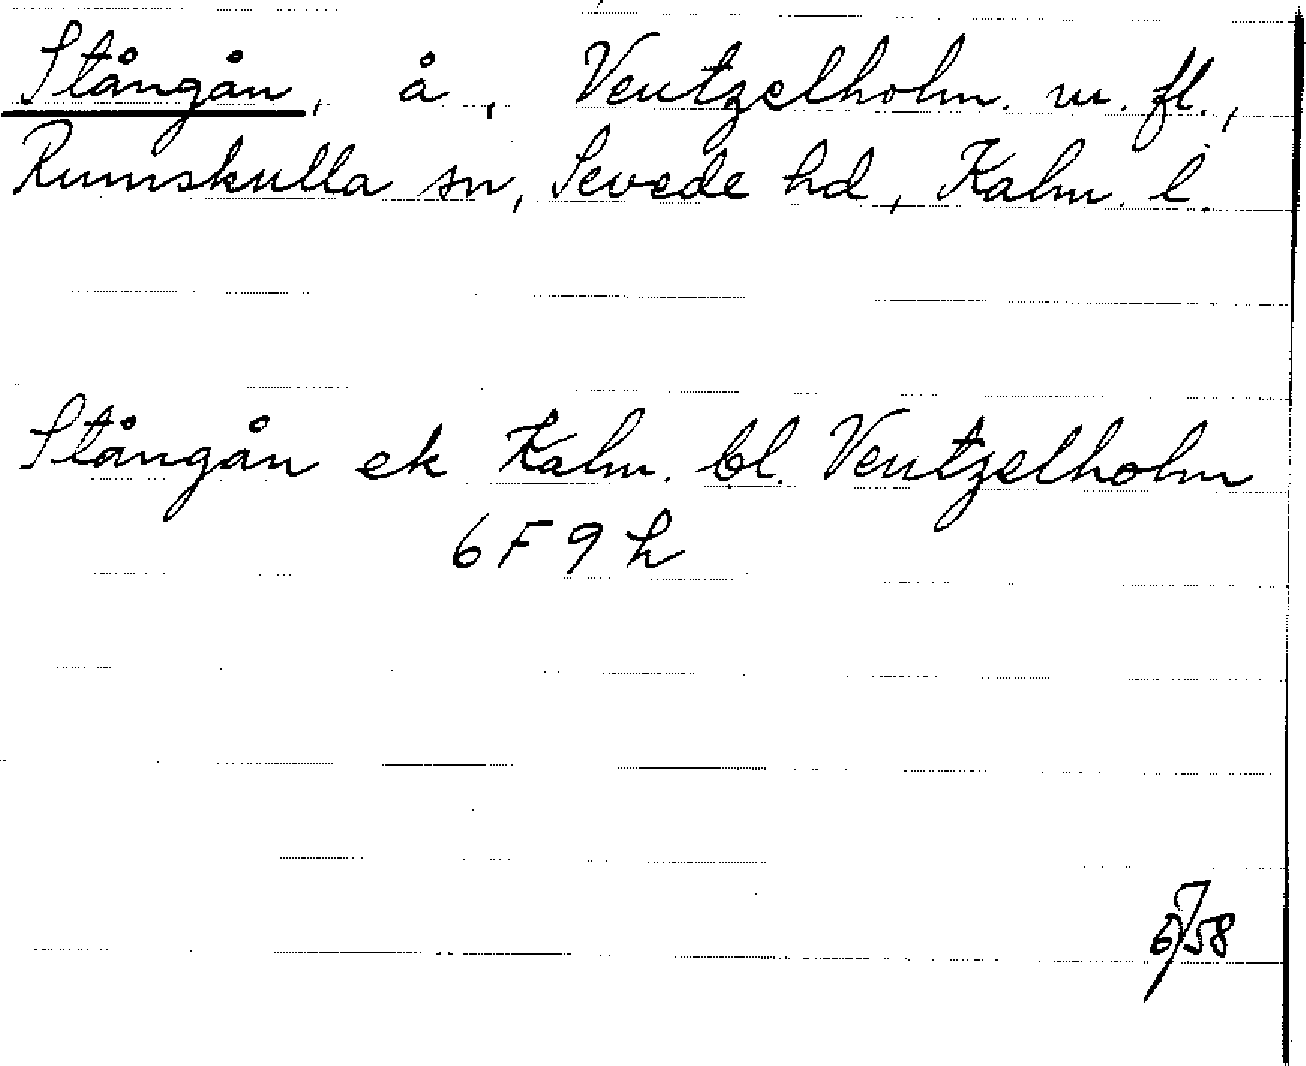 Stångån, å, Ventzelholm. m. fl.,
Rumskulla sn, Sevede hd, Kalm. l.
Stångån ek Kalm. bl. Ventzelholm
6F9h